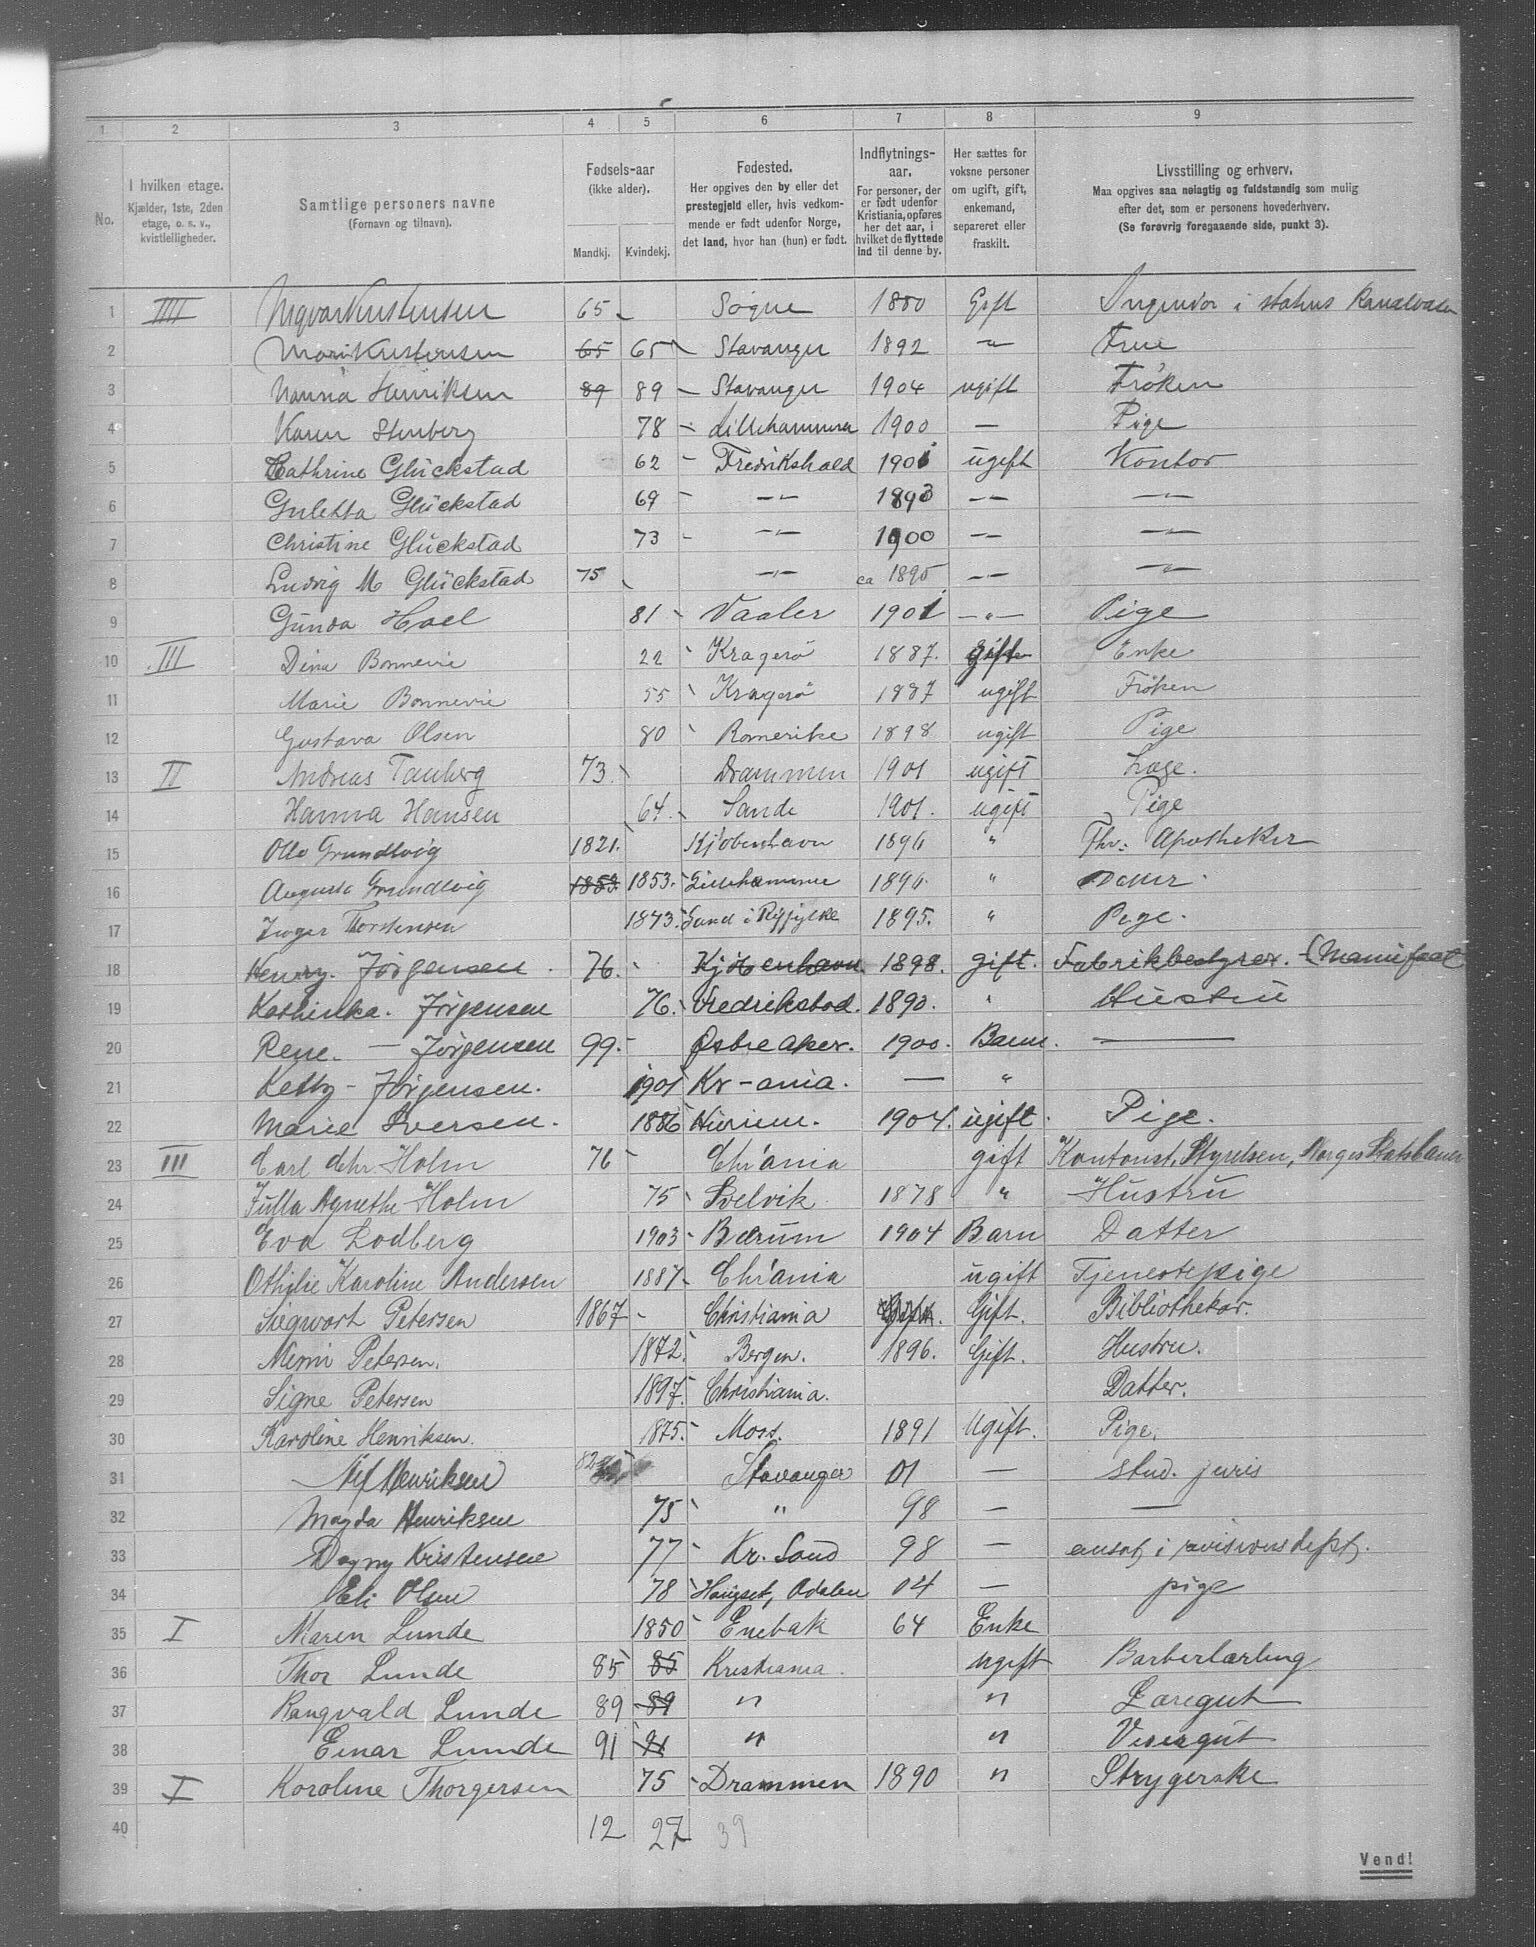 1 2 3 4 5 6 7 8 9
No. I hvilken etage. Kjælder, 1ste, 2den etage, o. s. v., kvistleiligheder. Samtlige personers navne (Fornavn og tilnavn). Fødsels-aar (ikke alder). Mandkj. Kvindekj. Fødested. Her opgives den by eller det prestegjeld eller, hvis vedkommende er født udenfor Norge, det land, hvor han (hun) er født. Indflytnings-aar. For personer, der er født udenfor Kristiania, opføres her det aar, i hvilket de flyttede ind til denne by. Her sættes for voksne personer om ugift, gift, enkemand, separeret eller fraskilt. Livsstilling og erhverv. Maa opgives saa nøiagtig og fuldstændig som mulig efter det, som er personens hovederhverv. (Se forøvrig foregaaende side, punkt 3).
1 IIII Ingvar Kristensen 65 Søgne 1880 Gift Ingeniør i statens Kanalvæsen
2 Mari Kristensen 65 65 Stavanger 1892 -"- Frue
3 Nanna Henriksen 89 89 Stavanger 1904 ugift Frøken
4 Karen Stenberg 78 Lillehammer 1900 — Pige
5 Cathrine Glückstad 62 Fredrikshald 1901 ugift Kontor
6 Guletta Glückstad 69 -"- 1893 -"- -"-
7 Christine Glückstad 73 -"- 1900 -"- -"-
8 Ludvig M Glückstad 75 -"- ca 1895 -"- -"-
9 Gunda Hoel 81 Vaaler 1901 -"- Pige
10 III Dina Bonnevie 22 Kragerø 1887. Gift Enke
11 Marie Bonnevie 55 Kragerø 1887 ugift Frøken
12 Gustava Olsen 80 Romerike 1898 ugift Pige
13 II Andreas Tanberg 73 Drammen 1901 ugift Læge.
14 Hanna Hansen 64. Sande 1901. ugift Pige
15 Otto Grundtvig 1821. Kjøbenhavn 1896 " Fhv: Apotheker
16 Augusta Grundtvig 1853. 1853. Lillehammer 1896. " Datter.
17 Inger Thorstensen 1873. Sand i Ryfylke 1895. " Pige.
18 Henry. Jörgensen. 76. Kjöbenhavn. 1898. gift. Fabrikbestyrer. (Manufact
19 Kathinka. Jörgensen 76. Fredrikstad. 1890. " Hustru
20 Rene. — Jörgensen 99. Østre Aker. 1900. Barn. —
21 Ketty - Jörgensen. 1901 Kr-ania. — "
22 Marie Iversen. 1886 Hurum. 1904. ugift. Pige.
23 III Carl Chr. Holm 76 Chr'ania gift Kontorist, Styrelsen, Norges Statsbaner
24 Julla Agnethe Holm 75 Svelvik 1878 " Hustru
25 Eva Lodberg 1903 Bærum 1904 Barn Datter
26 Othilie Karoline Andersen 1887 Chr'ania ugift Tjenestepige
27 Siegwart Petersen 1867 Christiania Gift. Bibliothekar.
28 Mimi Petersen. 1872. Bergen. 1896. Gift. Hustru.
29 Signe Petersen 1897. Christiania. Datter.
30 Karoline Henriksen. 1875. Moss. 1891 Ugift. Pige.
31 Alf Henriksen 82 Stavanger 01 — stud. juris
32 Magda Henriksen 75 " 98 — —
33 Dagny Kristensen 77 Kr. Sand 98 — ansat i revisionsdept.
34 Eli Olsen 78 Odalen 04 — pige
35 I Maren Lunde 1850 Enebak 64 Enke
36 Thor Lunde 85 85 Kristiania. ugift Barberlærling
37 Rangvald Lunde 89 89 " " Læregut
38 Einar Lunde 91 91 " " Visergut
39 I Karoline Thorgersen 75 Drammen 1890 " Strygerske
40 12 27 39
Vend!